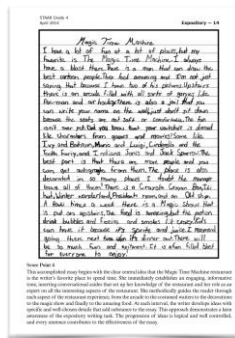 STAAR Grade 4
April 2014
Expository — 14
Magic Time Machine
I have a lot of fun at a lot of places, but my
favorite is The Magic Time Machine. I always
have a blast there. There is a man that can draw the
best cartoon people. They look amazing and I'm not just
saying that because I have two of his pictures. Upstairs
there is an arcade filled with all sorts of games like
Pac-man and air hockey. There is also a jail that you
can write your name on the wall, just don't sit down
because the seats are not soft or comfortable. The fun
isn't over yet. Did you know that your waitster is dressed
like characters from games and movies? Some like
Ivy and Batman, Mario and Luigi, Cinderella and the
Tooth Fairy, and I
best part is that there are more people and you
can get autographs from them. The place is also
decorated in so many places I
have all of them. There is a Crayola Crayon Box,
hut, winter wonderland, President room, and an Old Ship.
A few times a week there is a Magic Show that
is put on upstairs. The food is amazing but the potion
drink bubbles and foams and smokes like crazy. Kids
can have it because it's Sprite and juice. I
going there next time
be so much fun and enjoyment. It is often filled best
for everyone to enjoy!
Score Point 4
This accomplished essay begins with the clear central idea that the Magic Time Machine restaurant
is the writer's favorite place to spend time. She immediately establishes an engaging, informative
tone, inserting conversational asides that set up her knowledge of the restaurant and her role as an
expert on all the interesting aspects of the restaurant. She methodically guides the reader through
each aspect of the restaurant experience, from the arcade to the costumed waiters to the decorations
to the magic show and finally to the amazing food. At each interval, the writer develops ideas with
specific and well-chosen details that add substance to the essay. This approach demonstrates a keen
awareness of the expository writing task. The progression of ideas is logical and well controlled,
and every sentence contributes to the effectiveness of the essay.